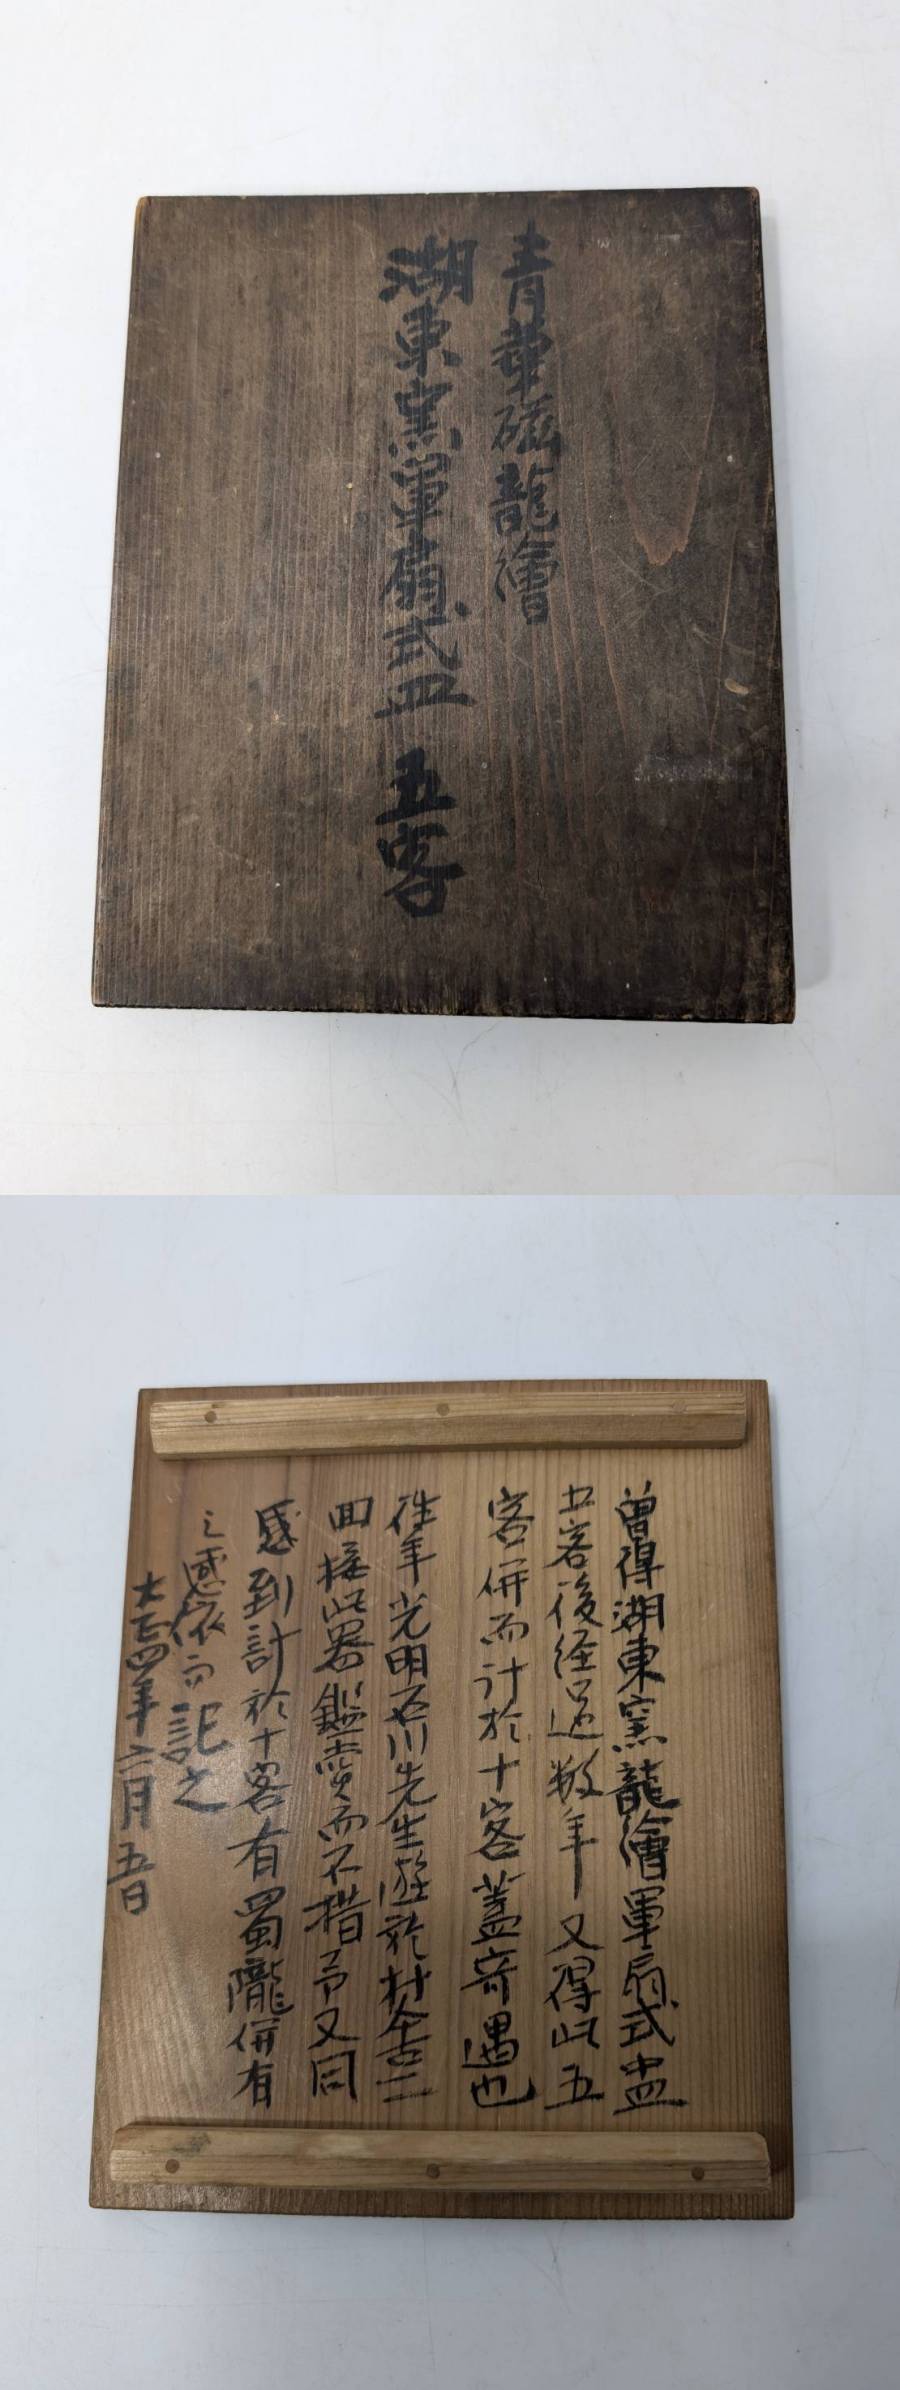 青華磁龍繪
湖東窯軍扇式皿 五客
曽得湖東窯龍繪軍扇式盅
五客後経過数年又得此五
客併而計於十客蓋奇遇也
往年光明石川先生遊於村舎二
回接此器鑑賣而不措予又同
感到計於十客有蜀隴併有
之感依而記之
大正四年六月五日